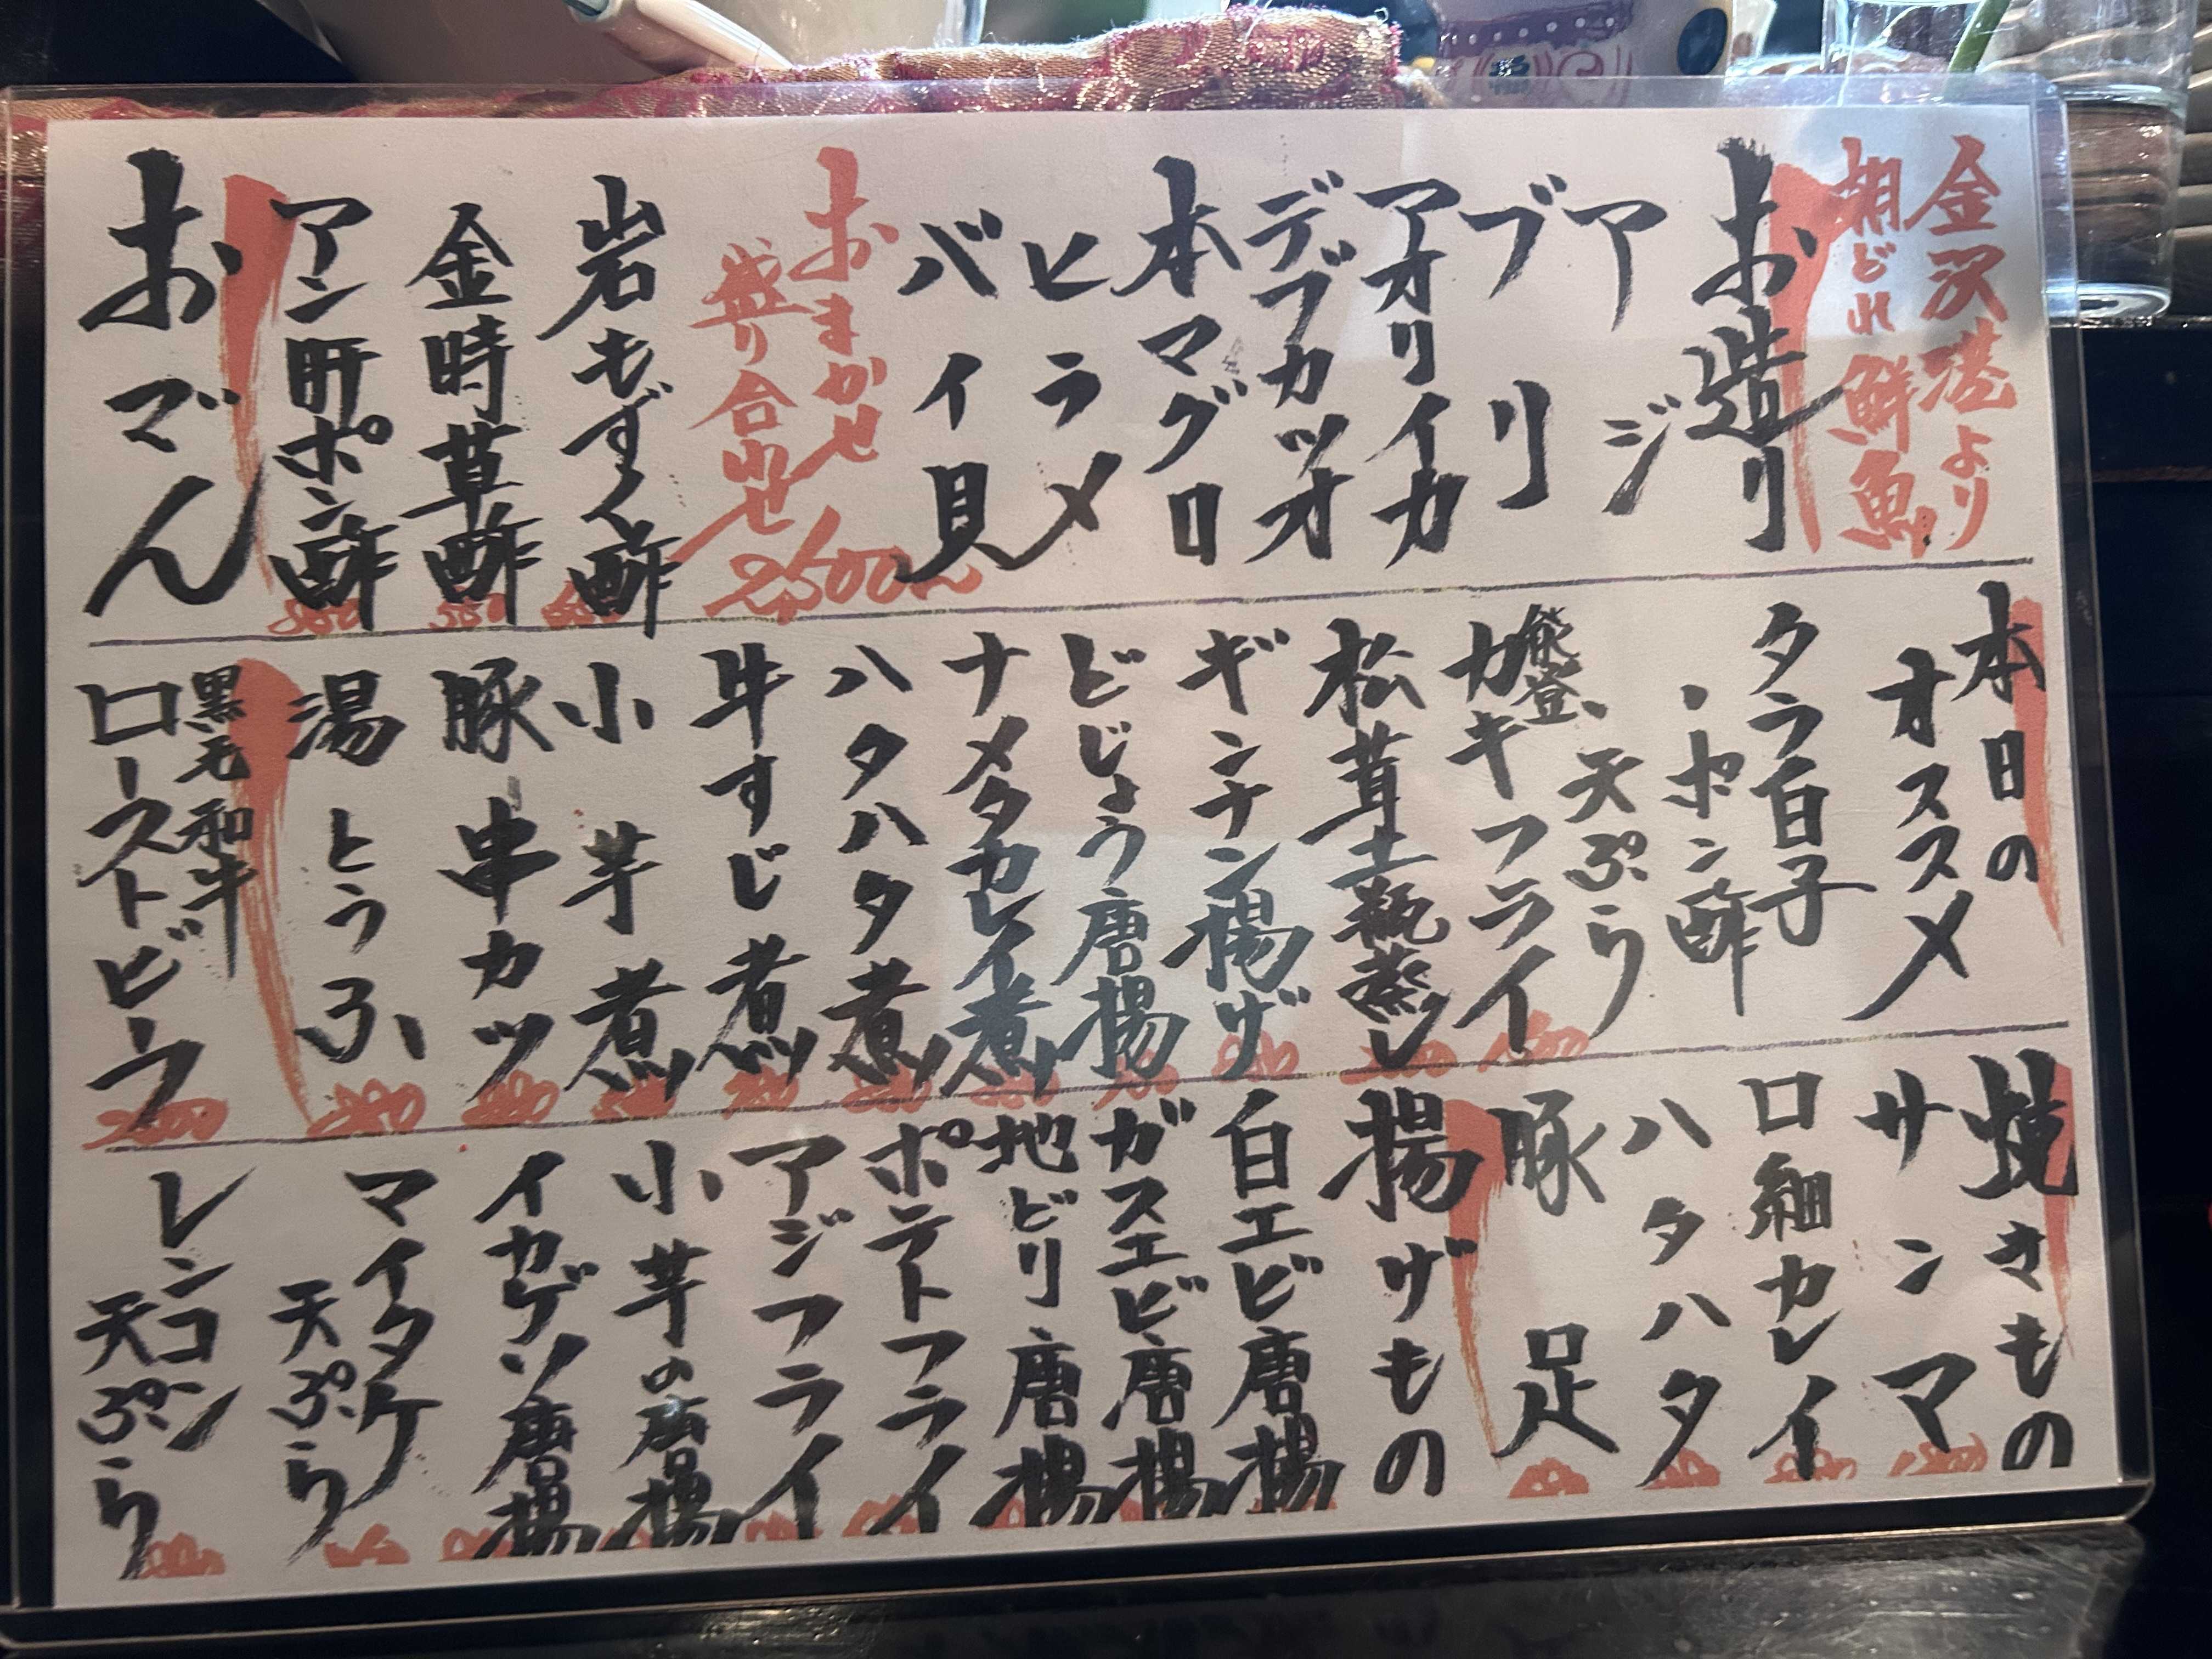 金沢港より
朝どれ鮮魚
お造り
アジ
ブリ
アオリイカ
デブカツオ
本マグロ
ヒラメ
バイ貝
おまかせ
盛り合せ
2,500〜
岩もずく酢
金時草酢
550
アン肝ポン酢
おでん
本日の
オススメ
タラ白子
・ポン酢
・天ぷら
能登
カキフライ
松茸土瓶蒸し
ギンナン揚げ
どじょう唐揚
ナメタカレイ煮
ハタハタ煮
牛すじ煮
小芋煮
豚串カツ
湯とうふ
黒毛和牛
ローストビーフ
焼きもの
サンマ
口細カレイ
ハタハタ
豚足
揚げもの
白エビ唐揚
ガスエビ唐揚
地どり唐揚
ポテトフライ
アジフライ
小芋の唐揚
イカゲソ唐揚
マイタケ
天ぷら
レンコン
天ぷら